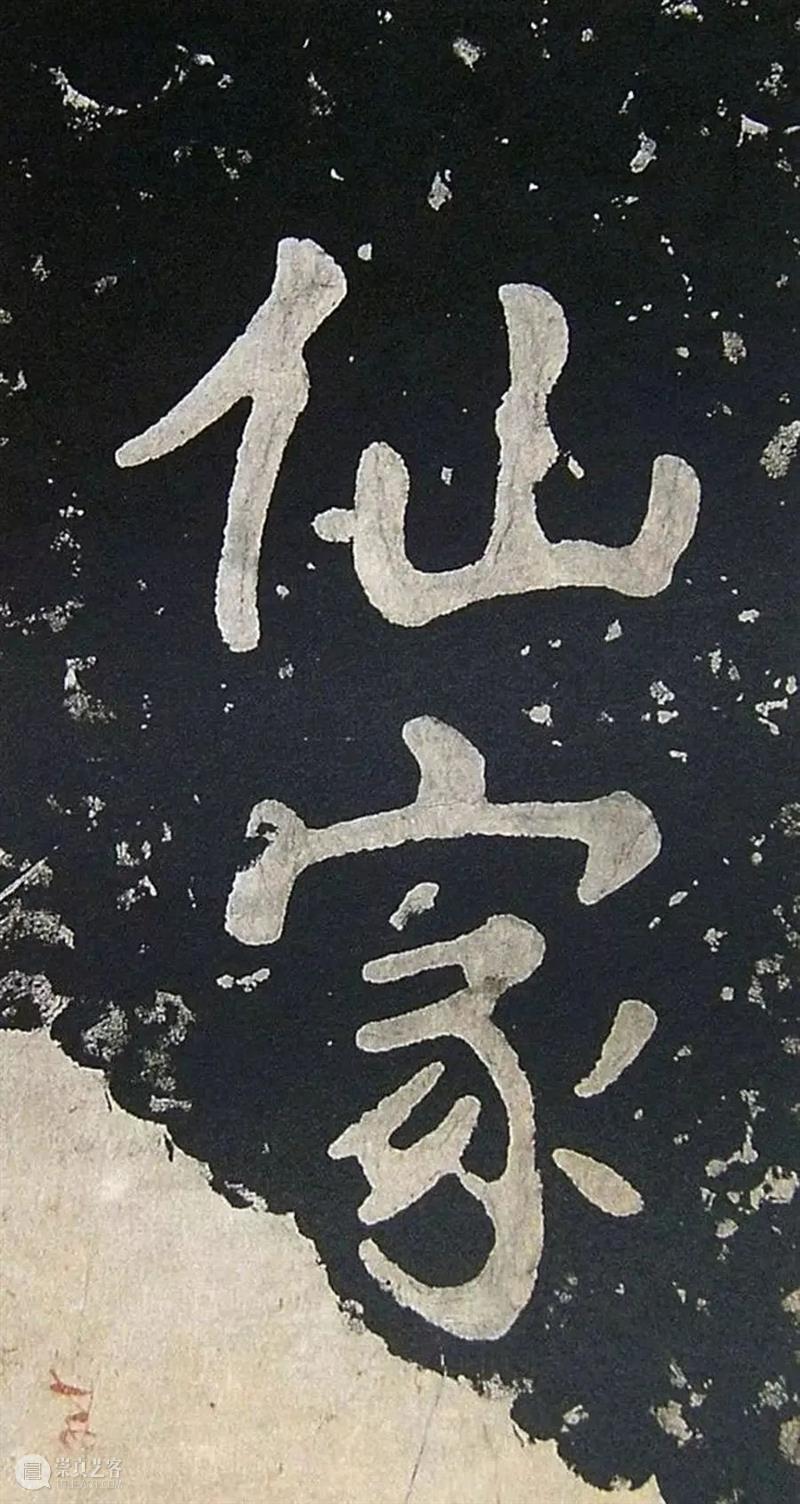 仙
家
崇真艺客